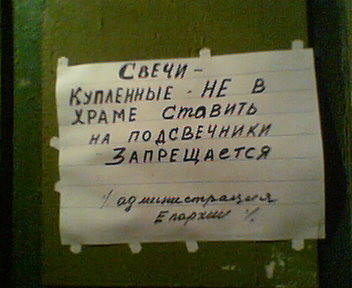 СВЕЧИ -
КУПЛЕННЫЕ - НЕ В
ХРАМЕ СТАВИТЬ
НА ПОДСВЕЧНИКИ
ЗАПРЕЩАЕТСЯ
администрация
Епархии